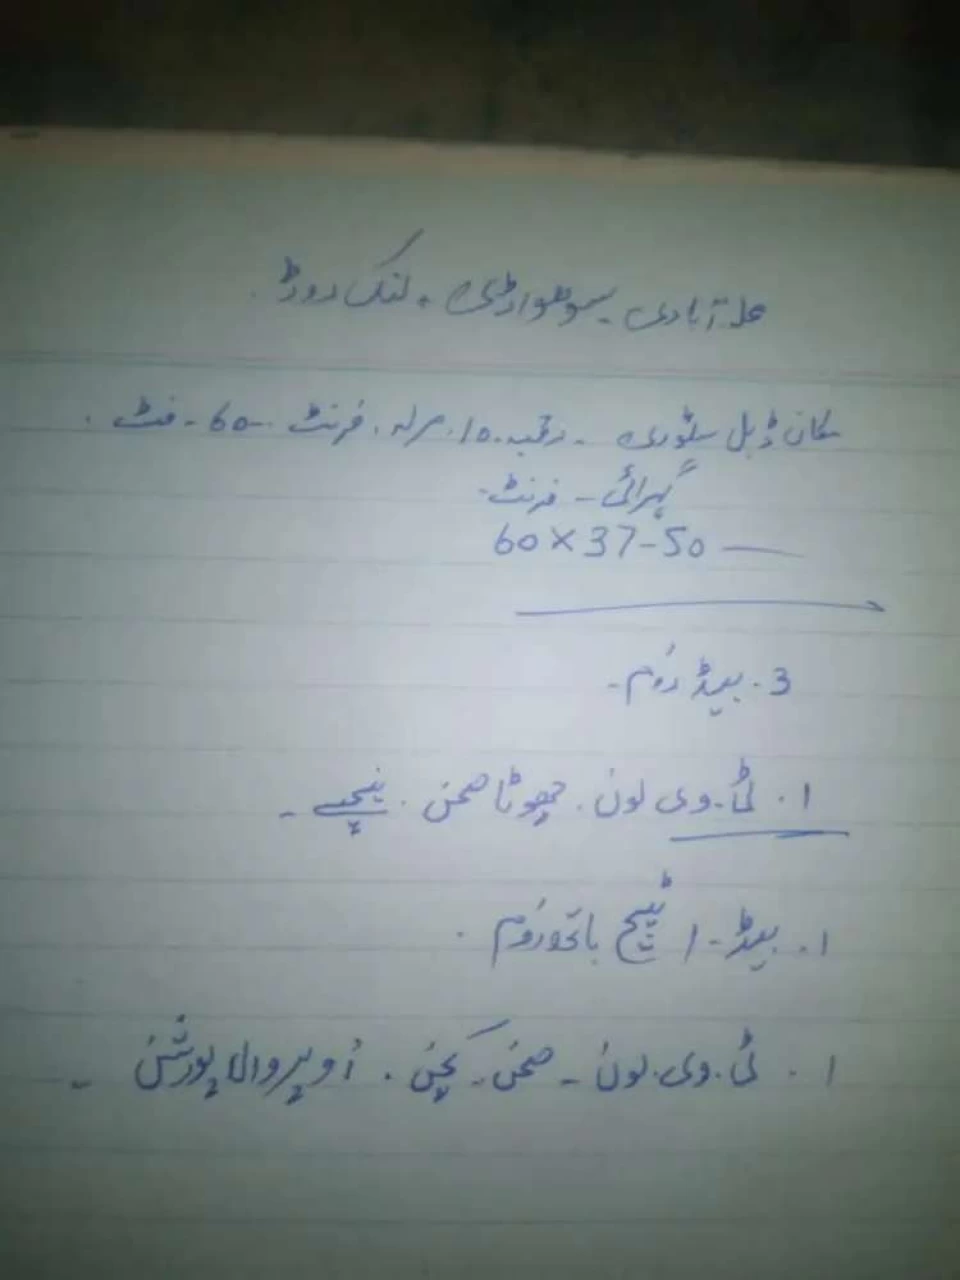 محلہ آبادی لنک روڈ
مکان ڈبل سٹوری - رقبہ 10 مرلہ . فرنٹ - 60 - فٹ .
گہرائی - فرنٹ
60 x 37-50
3 . بیڈ روم -
1 . ٹی . وی لون . چھوٹا صحن . نیچے -
1 . بیڈ - اٹیچ باتھ روم .
1 . ٹی . وی . لون - صحن - کچن . اوپر والا پورشن -